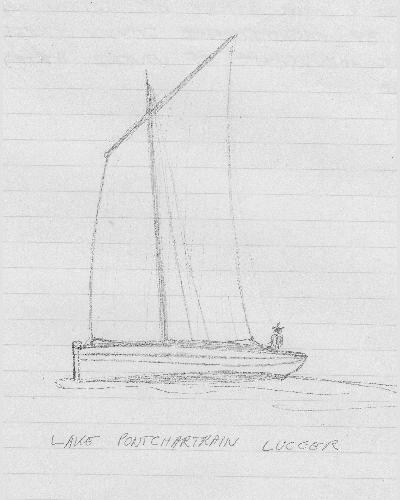 LAKE PONTCHARTRAIN LUGGER